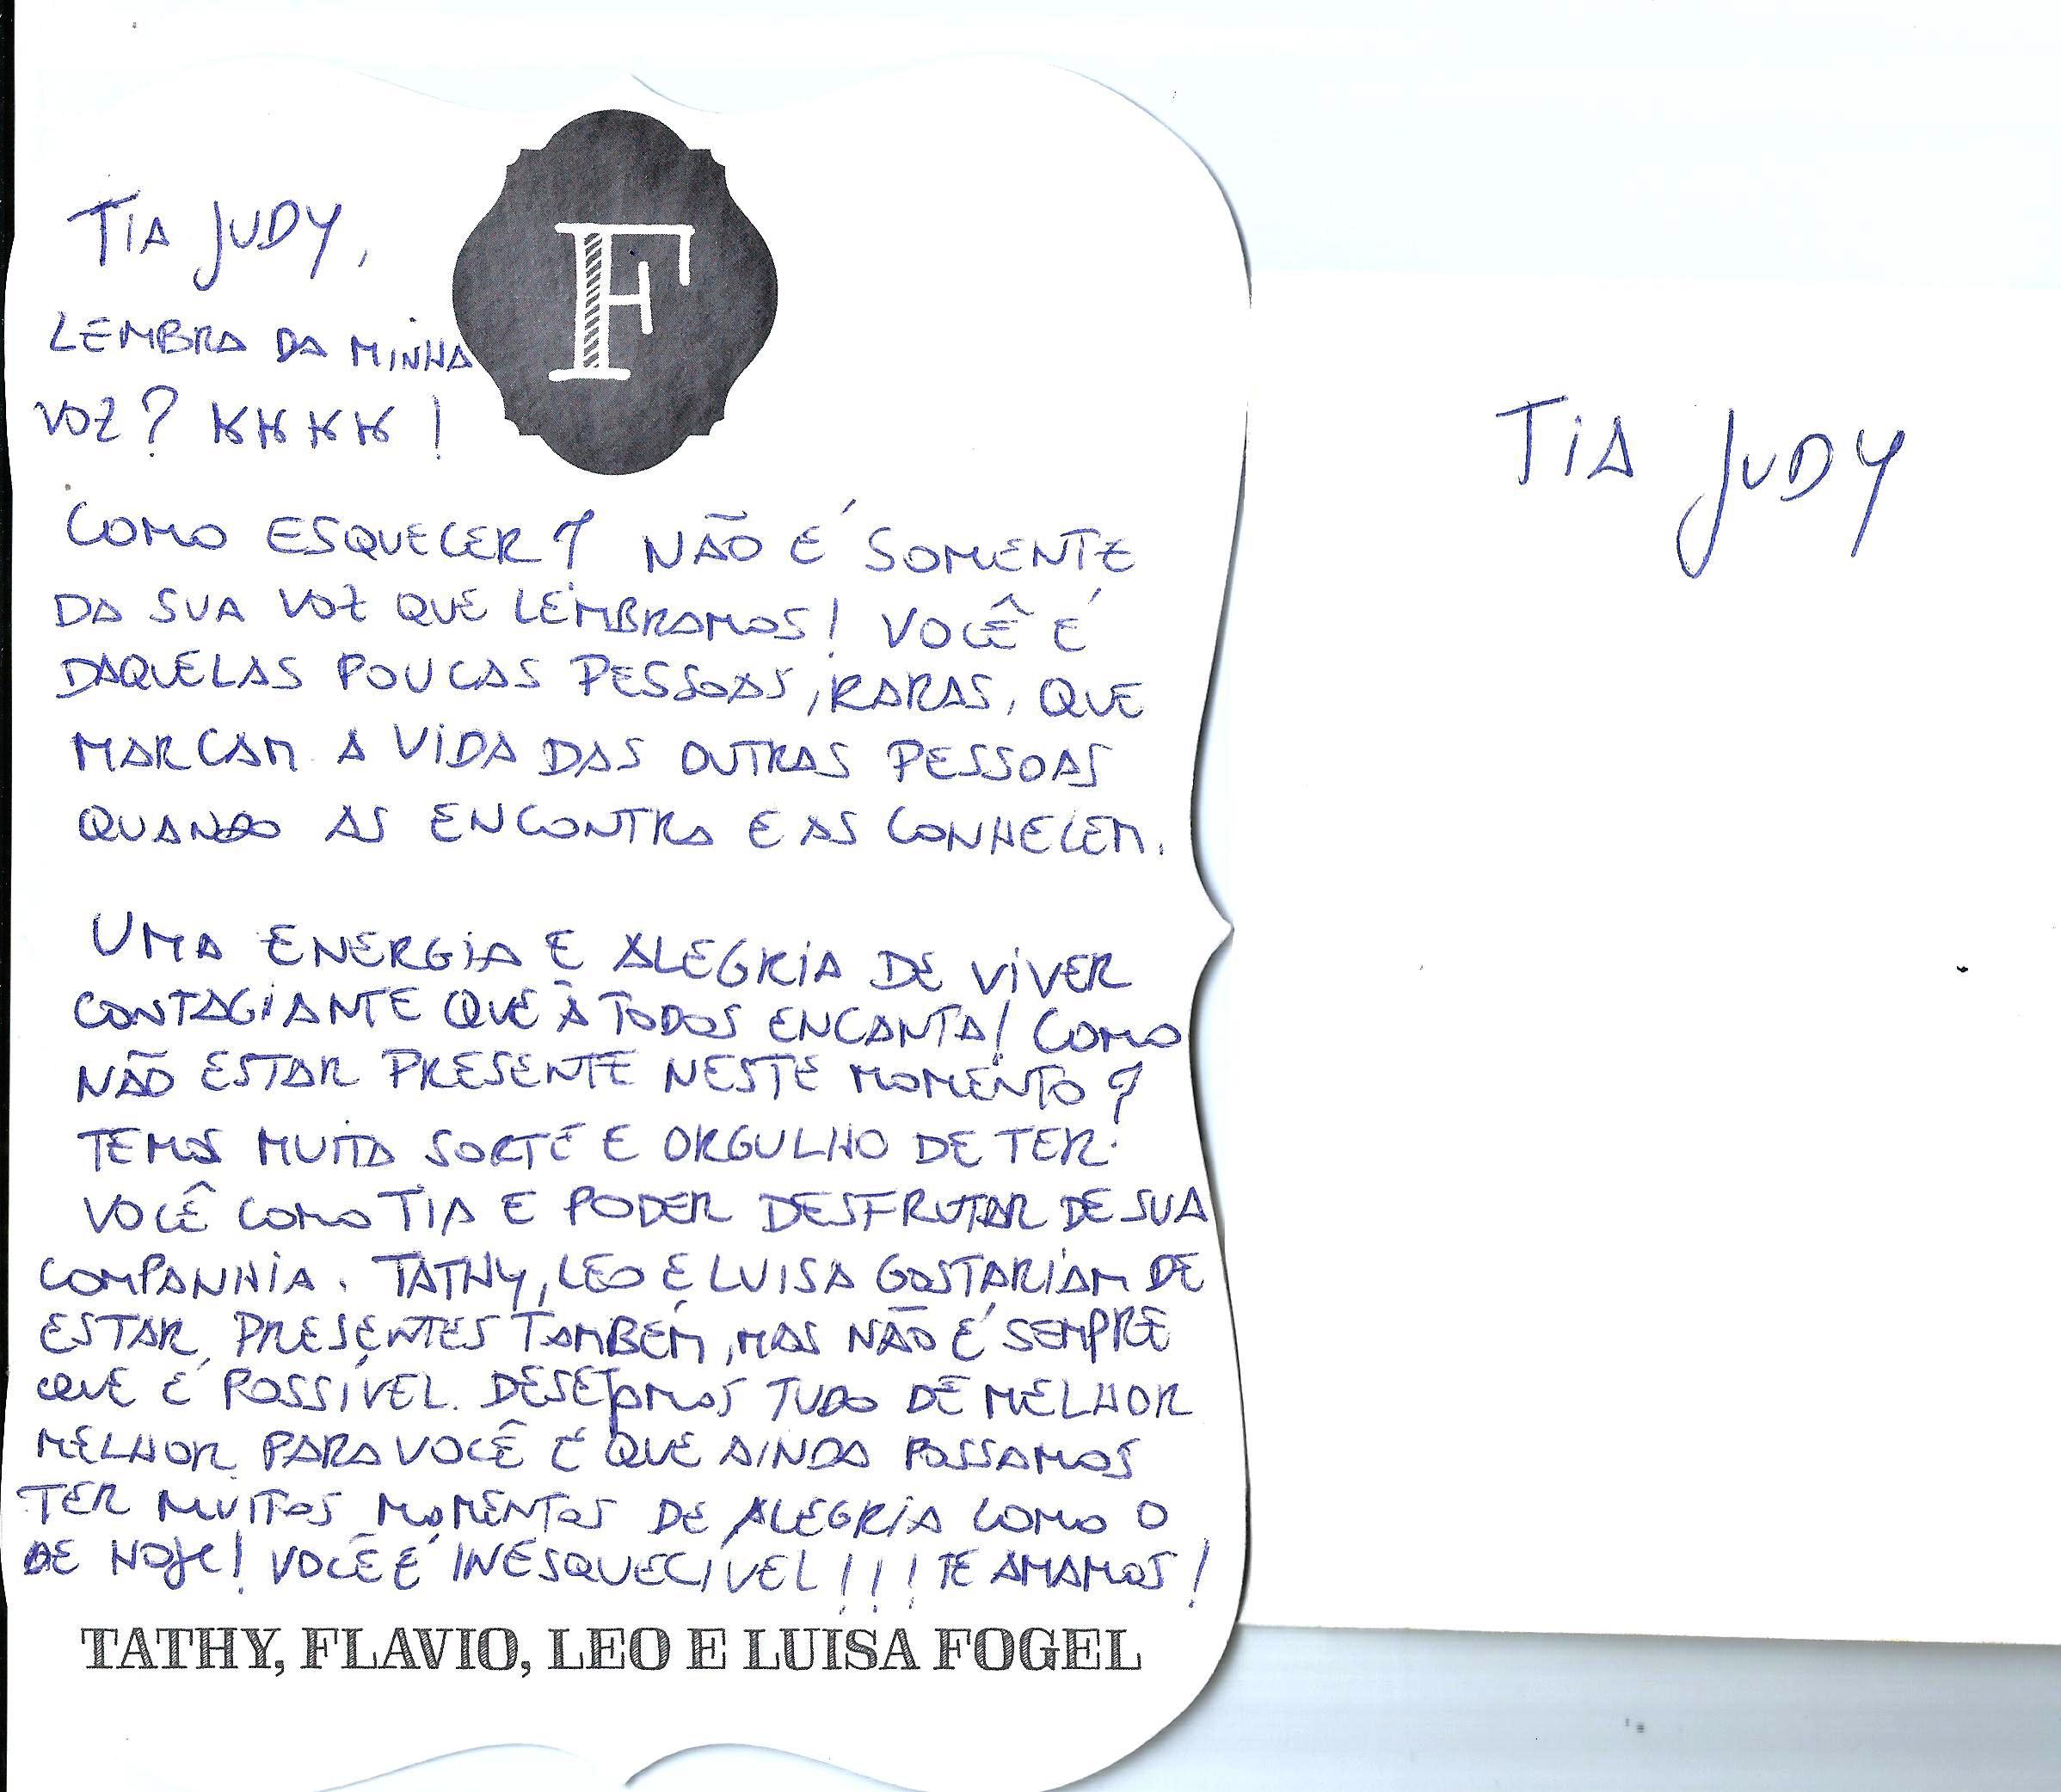 TIA JUDY,
F
LEMBRA DA MINHA
VOZ? KKKK!
COMO ESQUECER? NÃO É SOMENTE
DA SUA VOZ QUE LEMBRAMOS! VOCÊ É
DAQUELAS POUCAS PESSOAS, RARAS, QUE
MARCAM A VIDA DAS OUTRAS PESSOAS
QUANDO AS ENCONTRA E AS CONHECEM.
UMA ENERGIA E ALEGRIA DE VIVER
CONTAGIANTE QUE À TODOS ENCANTA! COMO
NÃO ESTAR PRESENTE NESTE MOMENTO?
TEMOS MUITA SORTE E ORGULHO DE TER
VOCÊ COMO TIA E PODER DESFRUTAR DE SUA
COMPANHIA. TATHY, LEO E LUISA GOSTARIAM DE
ESTAR PRESENTES TAMBÉM, MAS NÃO É SEMPRE
QUE É POSSÍVEL. DESEJAMOS TUDO DE MELHOR
MELHOR PARA VOCÊ E QUE AINDA POSSAMOS
TER MUITOS MOMENTOS DE ALEGRIA COMO O
DE HOJE! VOCÊ É INESQUECÍVEL!!! TE AMAMOS!
TATHY, FLAVIO, LEO E LUISA FOGEL
TIA JUDY